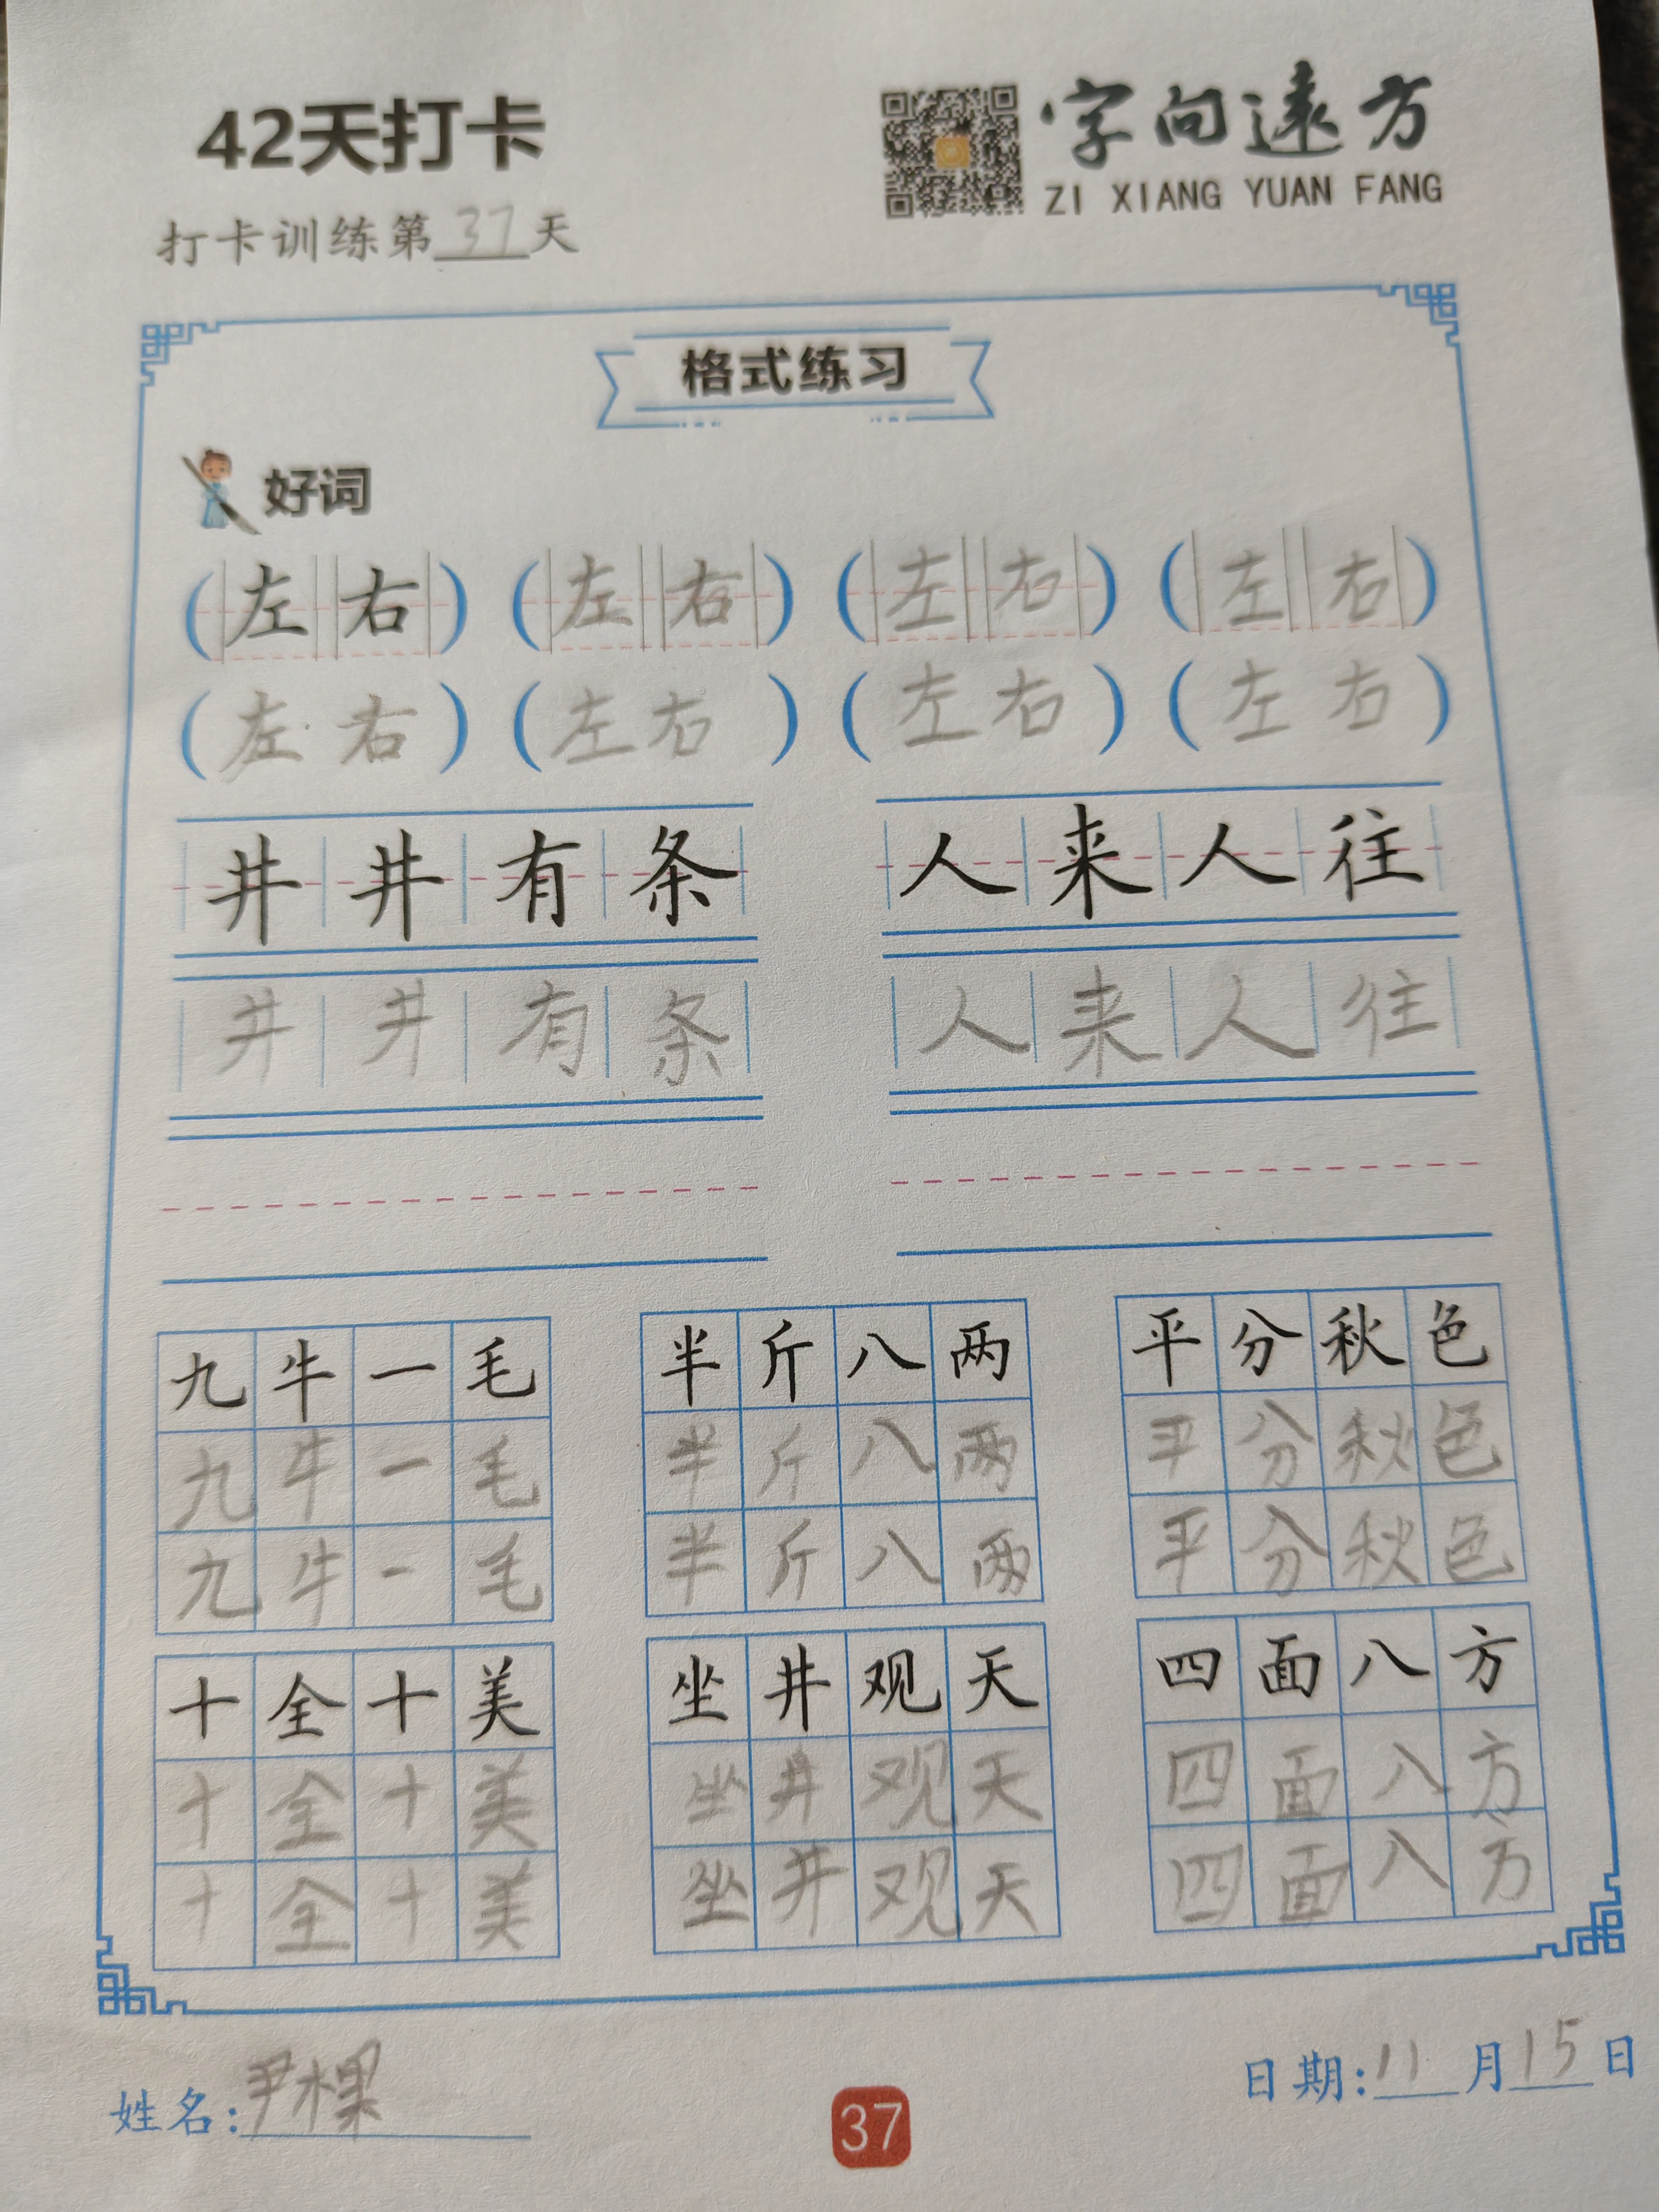 42天打卡
字向遠方
ZI XIANG YUAN FANG
打卡训练第37天
格式练习
好词
(左右) (左右) (左右) (左右)
(左右) (左右) (左右) (左右)
井井有条 人来人往
井井有条 人来人往
九牛一毛 半斤八两 平分秋色
九牛一毛 半斤八两 平分秋色
九牛一毛 半斤八两 平分秋色
十全十美 坐井观天 四面八方
十全十美 坐井观天 四面八方
十全十美 坐井观天 四面八方
姓名:尹棵
日期:11月15日
37